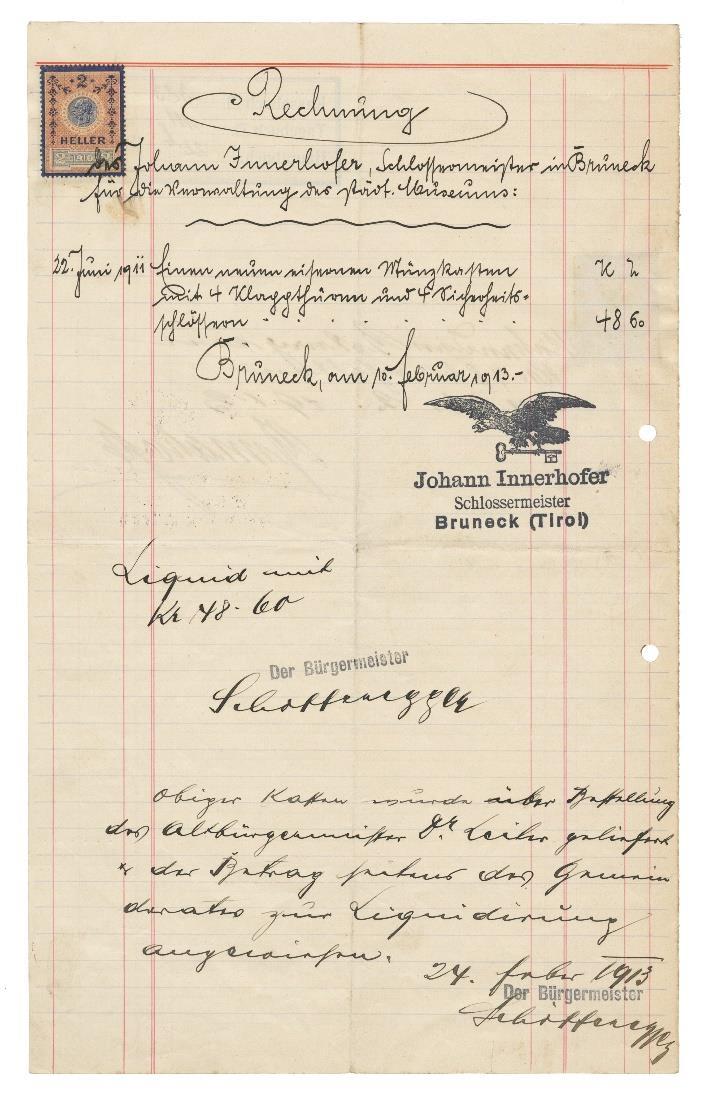 2
HELLER
Rechnung
des Johann Innerhofer, Schlossermeister in Bruneck
für die Verwaltung des städt. Museums:
22. Juni 1911 Einen neuen eisernen Münzkasten K h
mit 4 Klappthüren und 4 Sicherheits=
schlössern . . . . . . . 48 60
Bruneck, am 10. Februar 1913.-
Johann Innerhofer
Schlossermeister
Bruneck (Tirol)
Liquid mit
Kr 48.60
Der Bürgermeister
Schöttenegger
Obiger Kasten wurde über Bestellung
des Altbürgermeister Dr. Leiter geliefert
u der Betrag seitens des Gemein
derates zur Liquidirung
angewiesen.
24. Feber 1913
Der Bürgermeister
Schöttenegger